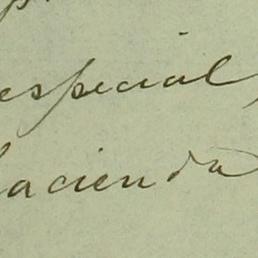 especial,
hacienda